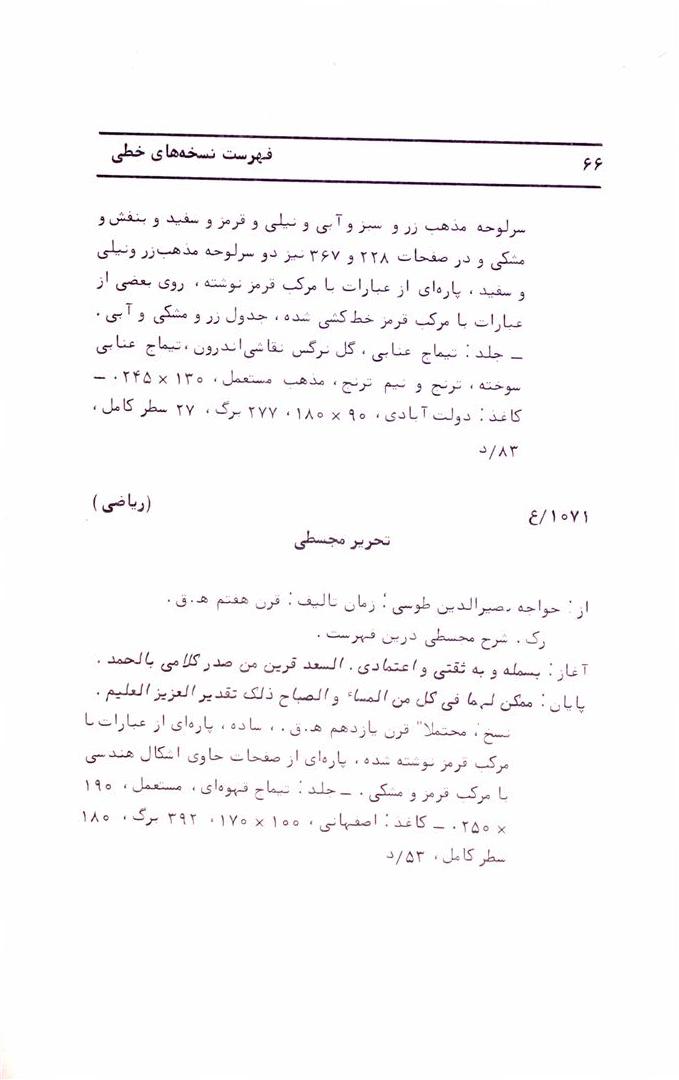 ۶۶ فهرست نسخه‌های خطی
سرلوحه مذهب زر و سبز و آبی و نیلی و قرمز و سفید و بنفش و
مشکی و در صفحات ۲۲۸ و ۳۶۷ نیز دو سرلوحه مذهب‌زر ونیلی
و سفید ، پاره‌ای از عبارات با مرکب قرمز نوشته ، روی بعضی از
عبارات با مرکب قرمز خط‌کشی شده ، جدول زر و مشکی و آبی .
ـ جلد : تیماج عنابی ، گل نرگس نقاشی‌اندرون ،تیماج عنابی
سوخته ، ترنج و نیم ترنج ، مذهب مستعمل، ۱۳۰ × ۲۴۵ . ـ
کاغذ : دولت آبادی ، ۹۰ × ۱۸۰ ، ۲۷۷ برگ، ۲۷ سطر کامل ،
۸۳/د
۱۰۷۱/ع (ریاضی)
تحریر مجسطی
از : خواجه نصیرالدین طوسی ؛ زمان تالیف : قرن هفتم هـ.ق.
رک . شرح مجسطی درین فهرست .
آغاز : بسمله و به ثقتی و اعتمادی . السعد قرین من صدر کلامی بالحمد .
پایان : ممکن لهما فی کل من المساء و الصباح ذلک تقدیر العزیز العلیم .
نسخ ؛ محتملا" قرن یازدهم هـ.ق. ، ساده ، پاره‌ای از عبارات با
مرکب قرمز نوشته شده ، پاره‌ای از صفحات حاوی اشکال هندسی
با مرکب قرمز و مشکی . ـ جلد : تیماج قهوه‌ای ، مستعمل ، ۱۹۰
× ۲۵۰ . ـ کاغذ : اصفهانی ، ۱۰۰ × ۱۷۰ ، ۳۹۲ برگ ، ۱۸۰
سطر کامل ، ۵۳/د